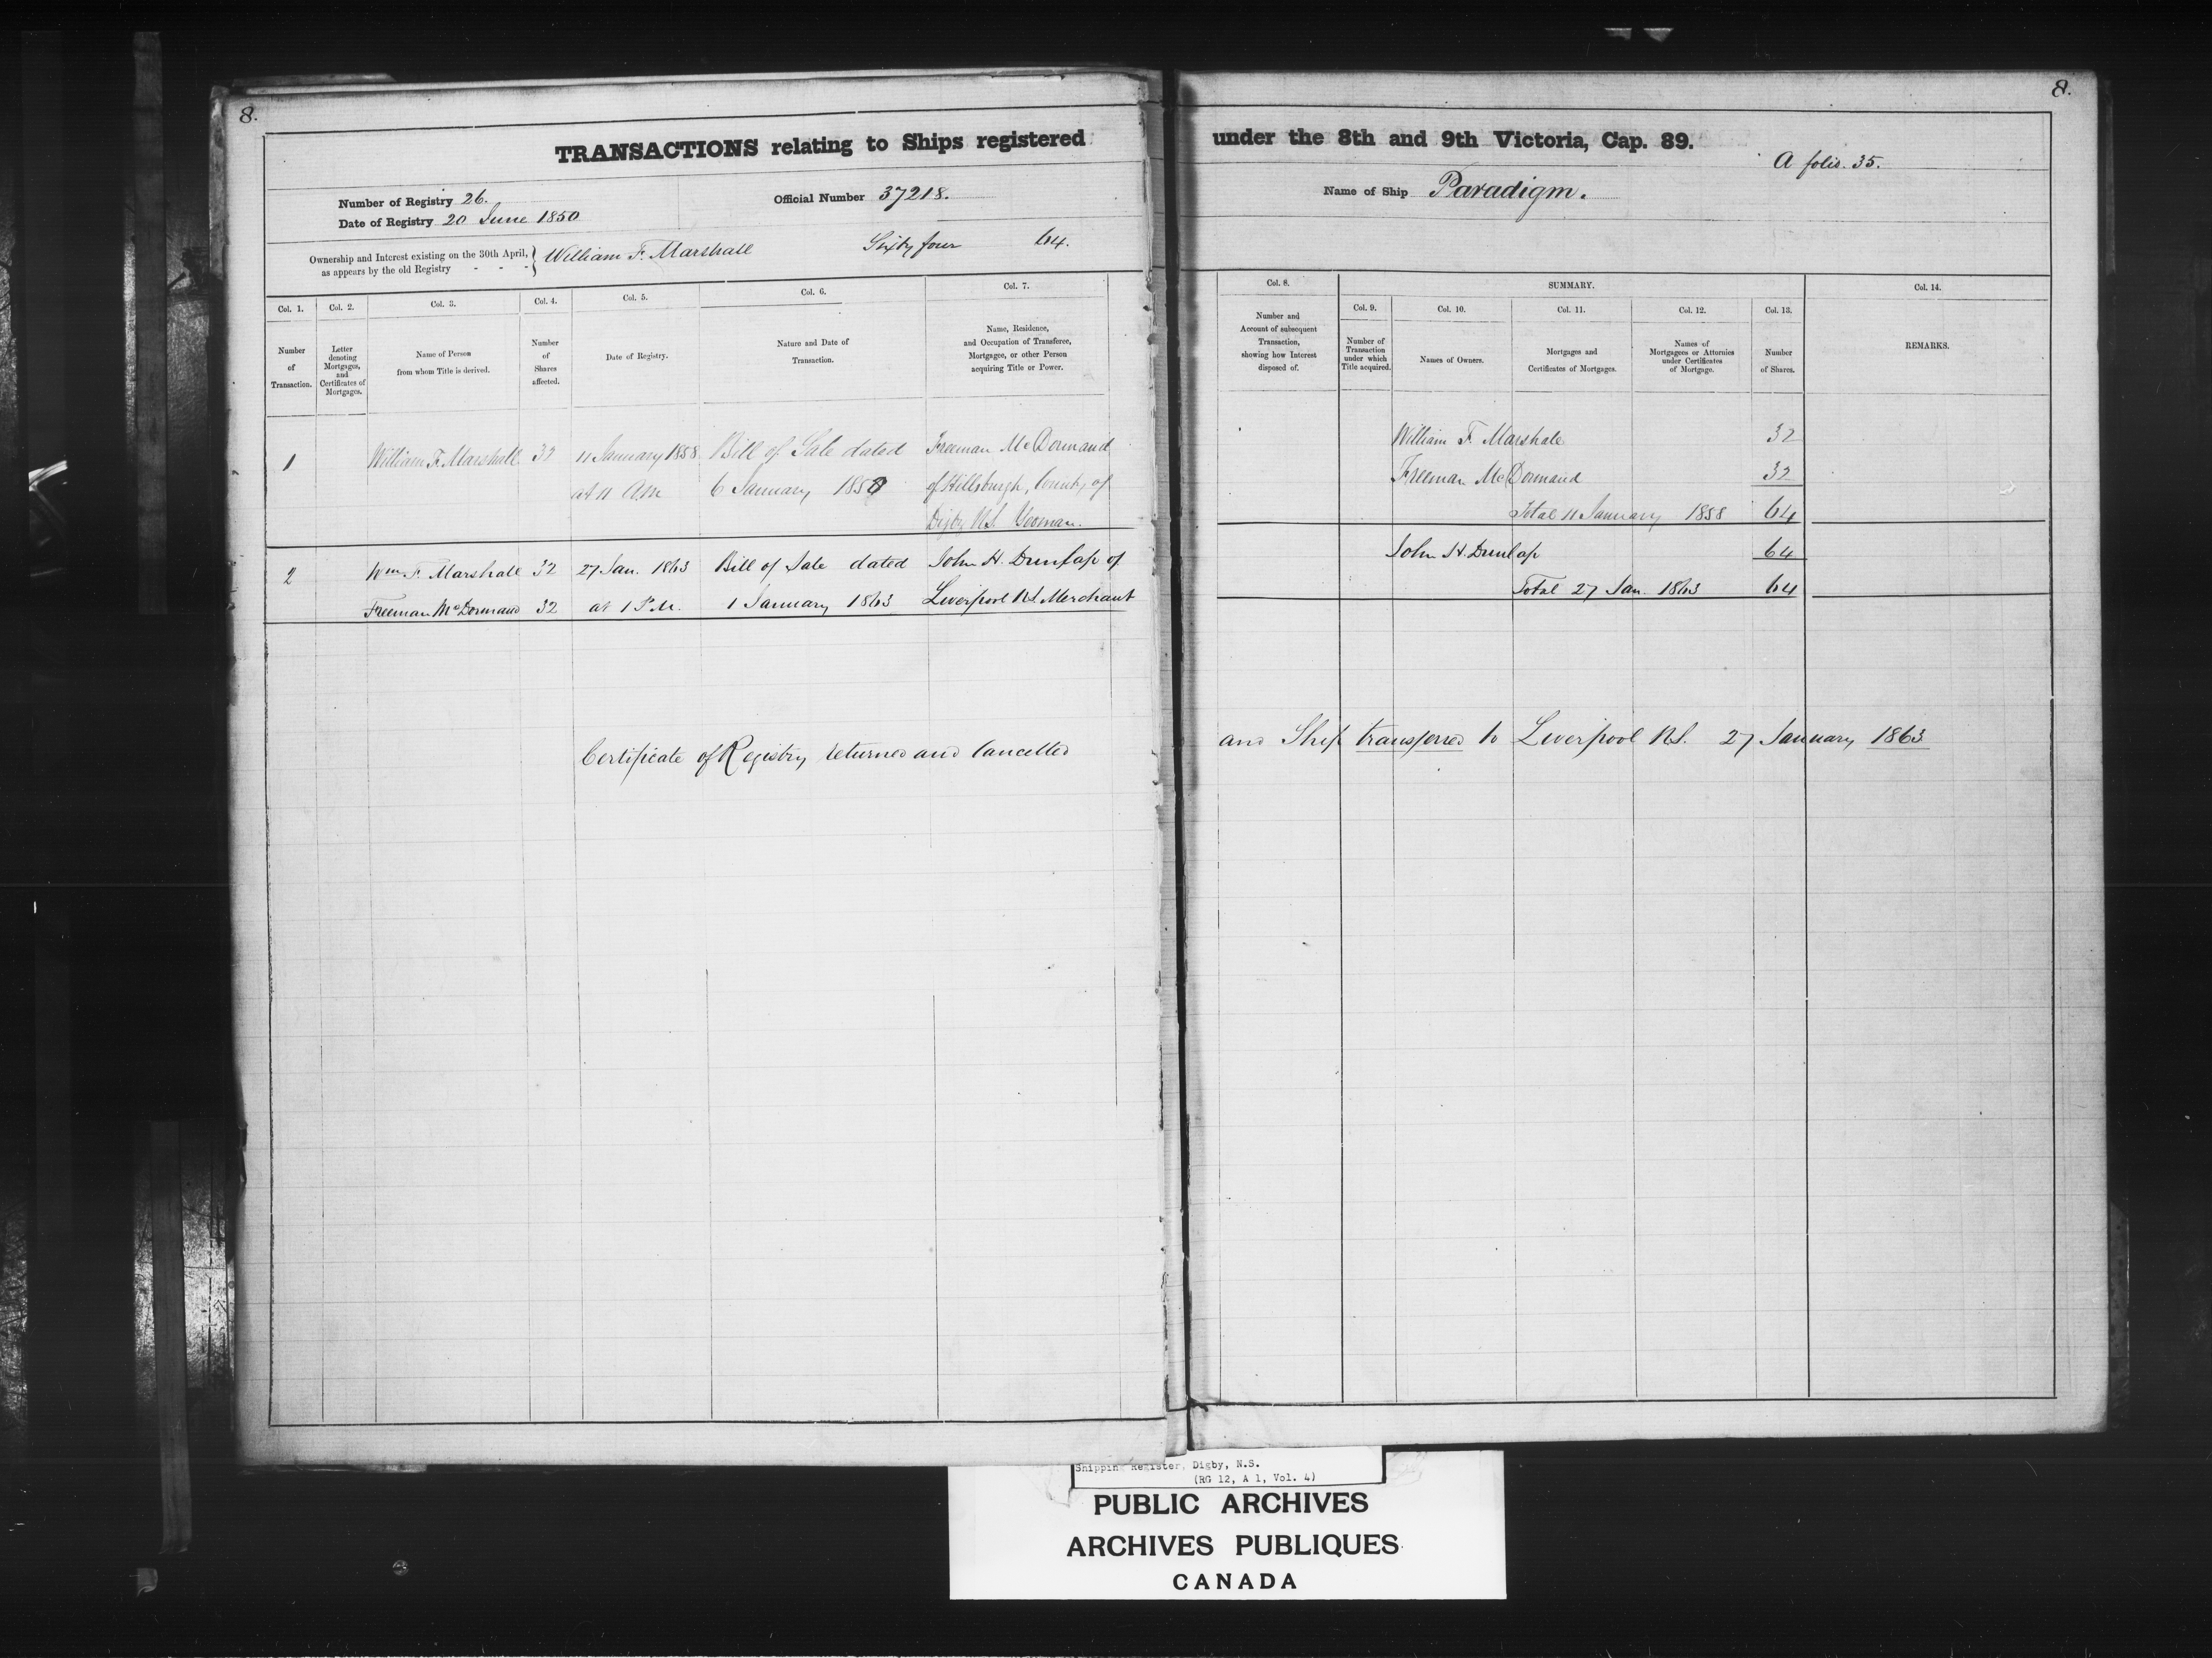 8.
8.
TRANSACTIONS relating to Ships registered under the 8th and 9th Victoria, Cap. 89.
A folio. 35.
Number of Registry 26.
Official Number 37218.
Name of Ship Paradigm.
Date of Registry 20 June 1850
Ownership and Interest existing on the 30th April,
as appears by the old Registry - - -
William F. Marshall Sixty four 64.
Col. 1. Col. 2. Col. 3. Col. 4. Col. 5. Col. 6. Col. 7.
Number of Transaction.
Letter denoting Mortgages, and Certificates of Mortgages.
Name of Person from whom Title is derived.
Number of Shares affected.
Date of Registry.
Nature and Date of Transaction.
Name, Residence, and Occupation of Transferee, Mortgagee, or other Person acquiring Title or Power.
Col. 8. SUMMARY. Col. 14.
Col. 9. Col. 10. Col. 11. Col. 12. Col. 13.
Number and Account of subsequent Transaction, showing how Interest disposed of.
Number of Transaction under which Title acquired.
Names of Owners.
Mortgages and Certificates of Mortgages.
Names of Mortgagees or Attornies under Certificates of Mortgage.
Number of Shares.
REMARKS.
1 William F. Marshall 32 11 January 1858 Bill of Sale dated Freeman McDormand
at 11 A.M 6 January of Hillsburgh, County of
Digby N.S. Yeoman.
William F. Marshall 32
Freeman McDormand 32
Total 11 January 1858 64
2 Wm F. Marshall 32 27 Jan. 1863 Bill of Sale dated John H. Dunlap of
Freeman McDormand 32 at 1 P.M. 1 January 1863 Liverpool N.S. Merchant
John H. Dunlap 64
Total 27 Jan. 1863 64
Certificate of Registry returned and Cancelled and Ship transferred to Liverpool N.S. 27 January 1863
Shipping Register, Digby, N.S.
(RG 12, A 1, Vol. 4)
PUBLIC ARCHIVES
ARCHIVES PUBLIQUES
CANADA